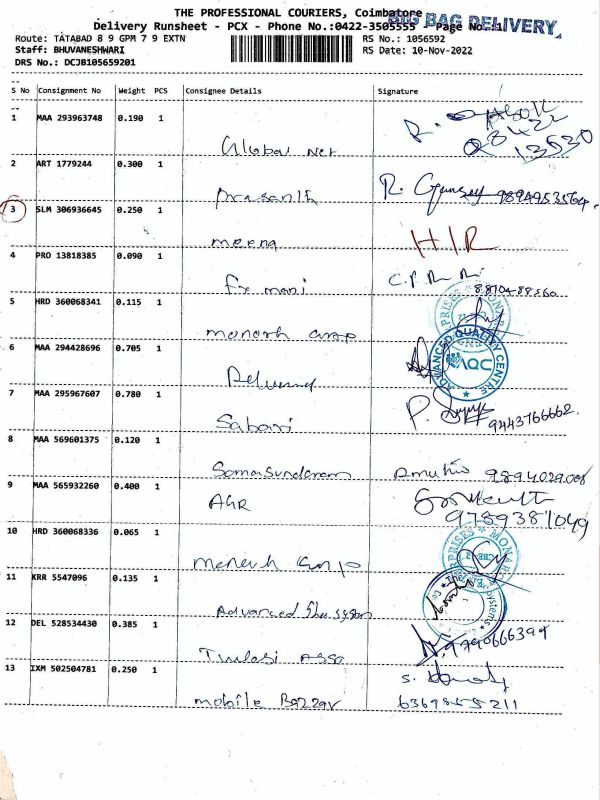 THE PROFESSIONAL COURIERS, Coimbatore
BIG BAG DELIVERY
Delivery Runsheet - PCX - Phone No.:0422-3505555 Page No.:1
Route: TATABAD 8 9 GPM 7 9 EXTN RS No.: 1056592
Staff: BHUVANESHWARI RS Date: 10-Nov-2022
DRS No.: DCJB105659201
S No Consignment No Weight PCS Consignee Details Signature
1 MAA 293963748 0.190 1
Global Net
28422
13530
2 ART 1779244 0.300 1
Prasanth R. 9894953564
3 SLM 306936645 0.250 1
meena HIR
4 PRO 13818385 0.090 1
Fx mani
5 HRD 360068341 0.115 1
6 MAA 294428696 0.705 1
ADVANCED QUALITY CENTRE
AQC
7 MAA 295967607 0.780 1
Sabari P. 9443766662
8 MAA 569601375 0.120 1
Somasundaram
9 MAA 565932260 0.400 1
AGR
9789381049
10 HRD 360068336 0.065 1
11 KRR 5547096 0.135 1
Advanced
12 DEL 528534430 0.385 1
Thulasi Asso 9790666394
13 IXM 502504781 0.250 1 S.
mobile Bazzar 6369855211